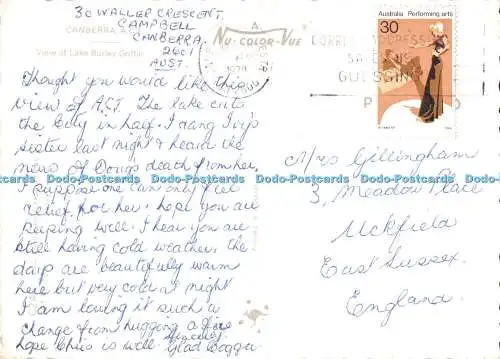 30 WALLER CRESCENT.
CAMPBELL
CANBERRA.
2601
AUST.
CANBERRA A.C.T.
View of Lake Burley Griffin
NU-COLOR-VUE
Australia Performing arts
30
CORRECT ADDRESS
SAVES
GUESSING
Thought you would like this
view of A.C.T. The lake cuts
the City in half. I rang Ivy's
sister last night & heard the
news of Doug's death from her,
I suppose one can only feel
relief for her. hope you are
keeping well. I hear you are
still having cold weather, the
days are beautifully warm
here but very cold at night
I am loving it such a
change from hugging a fire
hope Chris is well
Mrs Gillingham
3, Meadow Place
Uckfield
East Sussex.
England.
Dodo-Postcards Dodo-Postcards Dodo-Postcards Dodo-Postcards Dodo-Postcards